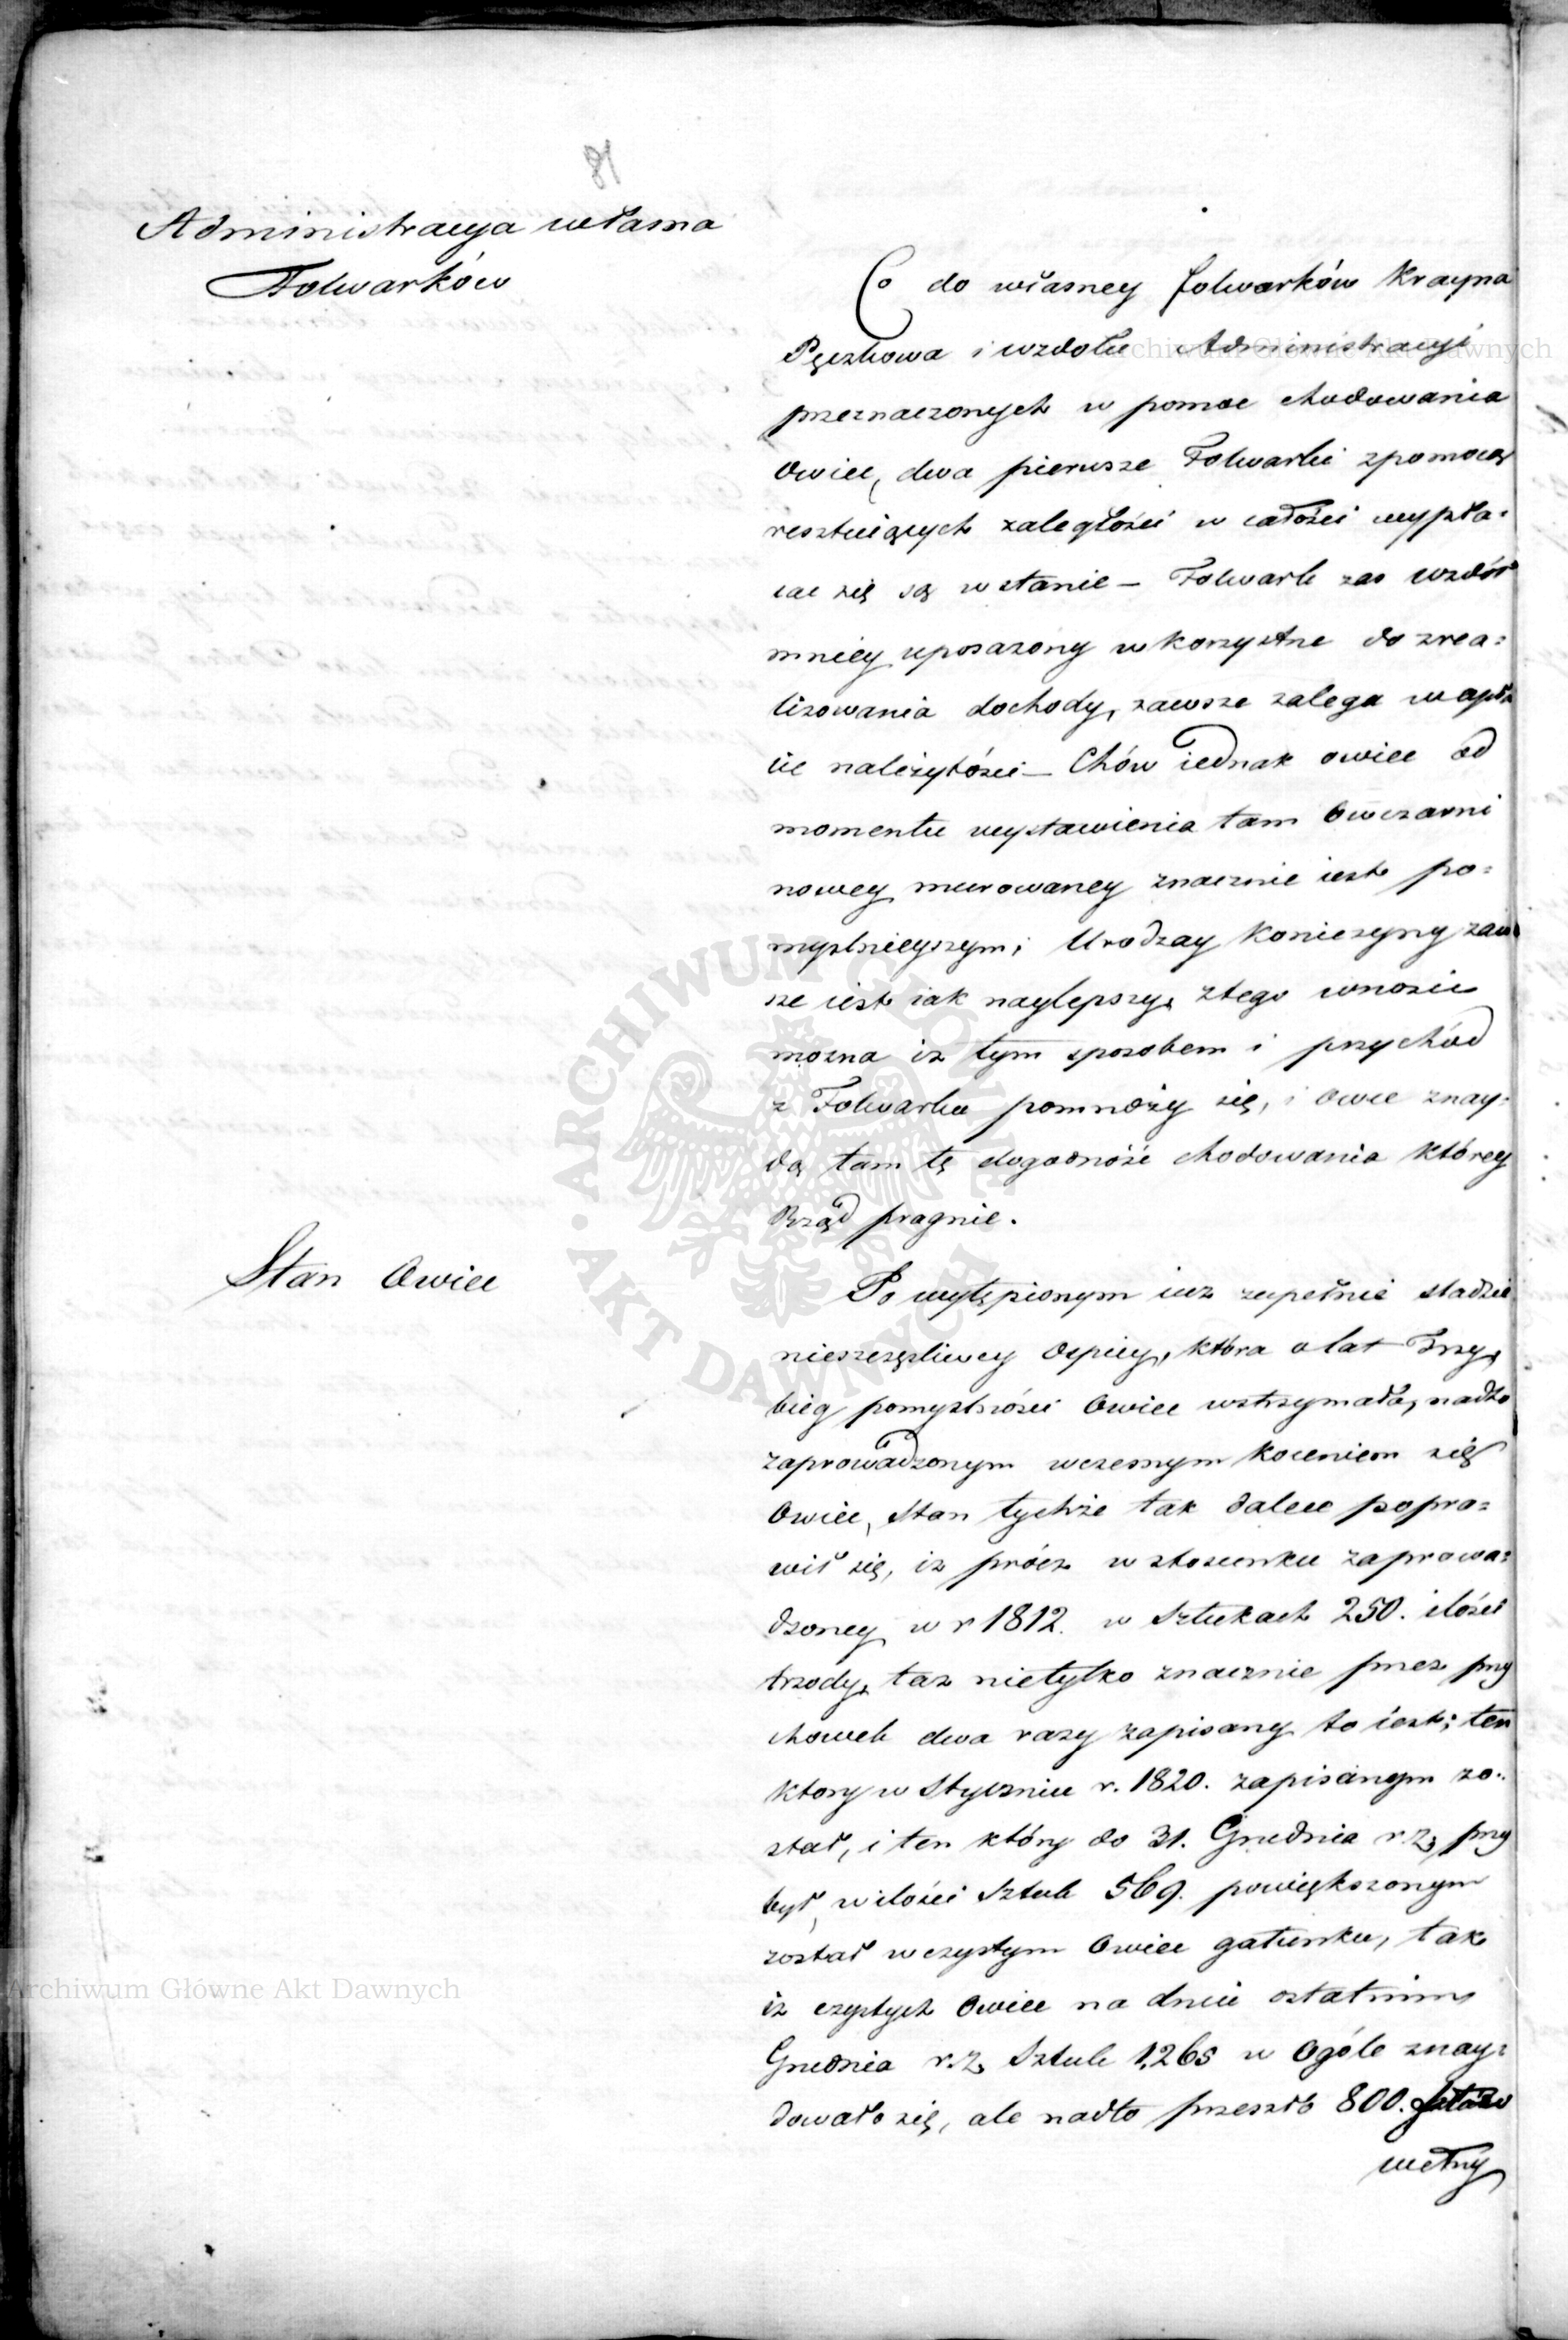 81
Administracya własna
Folwarków
Co do własney folwarków Krayna
Pęczkowa i wzdołu Administracyi
przeznaczonych w pomoc chodowania
Owiec, dwa pierwsze Folwarki zpomocą
resztuiących zaległości w całości wypła=
cać się są w stanie – Folwark zas wzdół
mniey uposazony w korzystne do zrea=
lizowania dochody, zawsze zalega w opła
cie należytości – Chów iednak owiec od
momentu wystawienia tam Owczarni
nowey murowaney znacznie iest po=
myslnieyszym; Urodzay Koniczyny zaw
sze iest iak naylepszy, ztego wnosić
mozna iz tym sposobem i przychód
z Folwarku pomnoży się, i Owce znay=
dą tam tę dogodność chodowania którey
Rząd pragnie.
Stan Owiec
Po wytępionym iuz zupełnie stadzie
nieszczęsliwey Ospicy, która o lat Trzy,
bieg pomyslności Owiec wstrzymała, nadto
zaprowadzonym wczesnym Koceniem się
Owiec, Stan tychże tak dalece popra=
wił się, iz prócz w stosunku zaprowa=
dzoney w r 1812. w Sztukach 250. ilości
trzody, taz nietylko znacznie przez przy
chowek dwa razy zapisany to iest; ten
ktory w Styczniu r. 1820. zapisanym zo=
stał, i ten który do 31. Grudnia r.z. przy
był, w ilości Sztuk 569. powiększonym
został w czystym Owiec gatunku, tak
iz czystych Owiec na dniu ostatnim
Grudnia r.z. Sztuk 1,265 w Ogóle znay=
dowało się, ale nadto przeszło 800.
wełny
Archiwum Główne Akt Dawnych
Archiwum Główne Akt Dawnych
ARCHIWUM GŁÓWNE AKT DAWNYCH